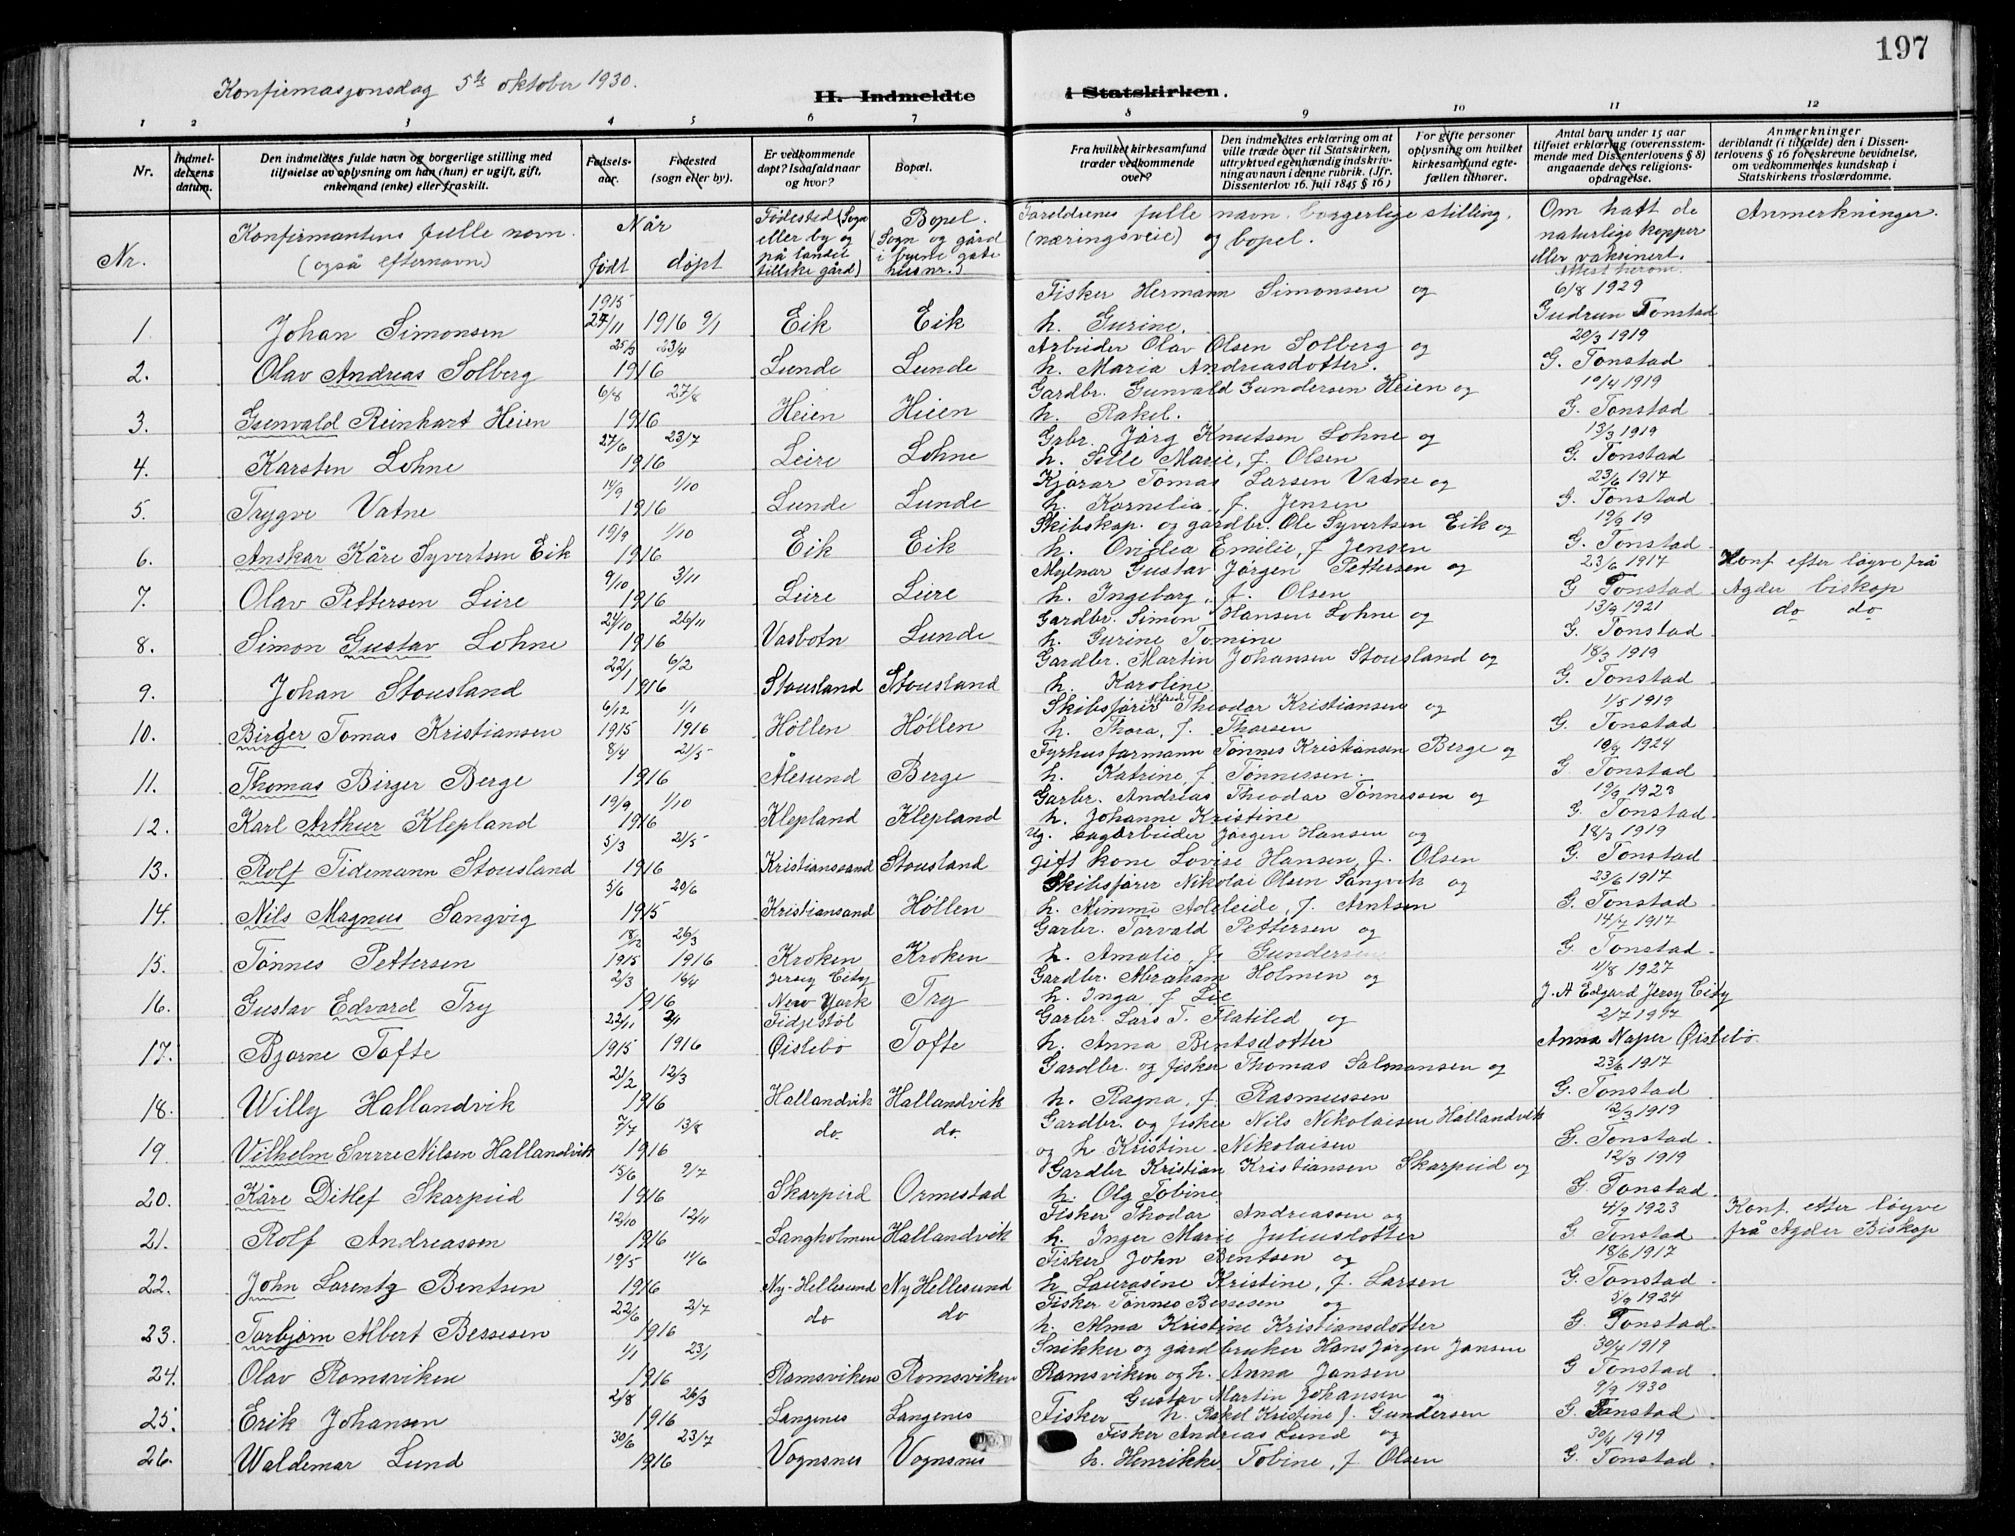 197
Konfirmasjonsdag 5te oktober 1930.
H. Indmeldte i Statskirken.
1 2 3 4 5 6 7 8 9 10 11 12
Nr.
Indmeldelsens datum.
Den indmeldtes fulde navn og borgerlige stilling med tilføielse av oplysning om han (hun) er ugift, gift, enkemand (enke) eller fraskilt.
Fødselsaar.
Fødested (sogn eller by).
Er vedkommende døpt? Isaafald naar og hvor?
Bopæl.
Fra hvilket kirkesamfund træder vedkommende over?
Den indmeldtes erklæring om at ville træde over til Statskirken, uttrykt ved egenhændig indskrivning av navn i denne rubrik. (Jfr. Dissenterlov 16. juli 1845 § 16.)
For gifte personer oplysning om hvilket kirkesamfund egtefællen tilhører.
Antal barn under 15 aar tilføiet erklæring (overensstemmende med Dissenterlovens § 8) angaaende deres religionsopdragelse.
Anmerkninger deriblandt (i tilfælde) den i Dissenterlovens § 16 foreskrevne bevidnelse, om vedkommendes kundskap i Statskirkens troslærdomme.
Nr.
Konfirmantens fulle navn. (også efternavn)
Når født døpt
Fødested (Sogn eller by og på landet tillike gård)
Bopel. (Sogn og gård i byene gate hus nr.)
Foreldrenes fulle navn, borgerlige stilling, (næringsveie) og bopel.
Om hatt de naturlige kopper eller vaksinert. Attest herom.
Anmerkninger.
1. Johan Simonsen 1915 27/11 1916 9/1 Eik Eik Fisker Hermann Simonsen og h. Gurine. 6/8 1929 Gudrun Tonstad
2. Olav Andreas Solberg 25/3 23/4 1916 Lunde Lunde Arbeider Olav Olsen Solberg og h. Maria Andreasdotter. 20/3 1919 G. Tonstad
3. Gunvald Reinhart Heien 6/8 27/8 1916 Heien Heien Gardbr. Gunvald Gundersen Heien og h. Rakel. 10/4 1919 G. Tonstad
4. Karsten Lohne 27/6 23/7 1916 Leire Lohne Grbr. Jørg Knutsen Lohne og h. Sille Marie, f. Olsen 13/3 1919 G. Tonstad
5. Trygve Vatne 14/9 1/10 1916 Lunde Lunde Kjørar Tomas Larsen Vatne og h. Kornelia, f. Jensen 23/6 1917 G. Tonstad
6. Anskar Kåre Syvertsen Eik 19/9 1/10 1916 Eik Eik Skibskap. og gardbr. Ole Syvertsen Eik og h. Ovidia Emilie, f Jensen 19/9 19 G. Tonstad
7. Olav Pettersen Leire 9/10 3/11 1916 Leire Leire Mylnar Gustav Jørgen Pettersen og h. Ingeborg, f. Olsen 23/6 1917 G Tonstad Konf efter løyve frå Agder biskop
8. Simon Gustav Lohne 24/10 26/11 1916 Vasbotn Lunde Gardbr. Simon Hansen Lohne og h. Gurine Tomine 13/9 1921 G. Tonstad do do
9. Johan Stousland 22/1 6/2 1916 Stousland Stousland Gardbr. Martin Johansen Stousland og h. Karoline 18/3 1919 G. Tonstad
10. Birger Tomas Kristiansen 6/12 1/1 1915 1916 Höllen Höllen Skibsfører Alfred Theodar Kristiansen og h. Thora, f. Thorsen 1/5 1919 G. Tonstad
11. Thomas Birger Berge 8/4 21/5 1916 Ålesund Berge Fyrhusformann Tönnes Kristiansen Berge og h. Katrine f. Tønnessen. 10/9 1924 G. Tonstad
12. Karl Arthur Klepland 19/9 1/10 1916 Klepland Klepland Garbr. Andreas Theodar Tønnessen og h. Johanne Kristine 19/9 1923 G. Tonstad
13. Rolf Tidemann Stousland 5/3 21/5 1916 Kristianssand Stousland Ug. sagarbeider Jørgen Hansen og gift kone Lovise Hansen, f. Olsen 18/3 1919 G. Tonstad
14. Nils Magnus Sangvig 5/6 20/6 1915 Kristiansand Höllen Skibsfører Nikolai Olsen Sangvik og h. Mimmi Adeleide, f. Arntsen 23/6 1917 G. Tonstad
15. Tönnes Pettersen 18/2 26/3 1915 1916 Kroken Kroken Garbr. Torvald Pettersen og h. Amalie, f. Gundersen 14/7 1917 G Tonstad
16. Gustav Edvard Try 2/3 16/4 1916 Jersey City New York Try Gardbr. Abraham Holmen og h. Inga, f. Lie 4/8 1927 J. A Edgard Jersy City
17. Bjarne Tofte 22/11 2/1 1915 1916 Fidjestöl Øislebø Tofte Garbr. Lars T. Flatiled og h. Anna Bentsdotter 2/7 1917 Anna Naper Øislebø
18. Willy Hallandvik 21/2 12/3 1916 Hallandvik Hallandvik Gardbr. og fisker Thomas Salmonsen og h. Ragna, f. Rasmussen 23/6 1917 G. Tonstad
19 Vilhelm Sverre Nilsen Hallandvik 7/7 13/8 1916 do. do. Gardbr. og fisker Nils Nikolaisen Hallandvik og h Kristine Nikolaisen 12/3 1919 G. Tonstad
20. Kåre Ditlef Skarpeid 15/6 9/7 1916 Skarpeid Ormestad Gardbr Kristian Kristiansen Skarpeid og h. Olg Tobine 12/3 1919 G. Tonstad
21. Rolf Andreassen 12/10 12/11 1916 Langholmen Hallandvik Fisker Thodar Andreassen og h. Inger Marie Juliusdotter 4/9 1923 G. Tonstad Konf. etter løyve frå Agder Biskop
22. John Lorentz Bentsen 19/5 14/6 1916 Ny-Hellesund Ny Hellesund Fisker John Bentsen og h. Laurasine Kristine, f. Larsen 18/6 1917 G. Tonstad
23. Torbjørn Albert Bessesen 22/6 2/7 1916 do do Fisker Tønnes Bessesen og h. Alma Kristine Kristiansdotter 5/9 1924 G. Tonstad
24. Olav Romsviken 1/1 23/1 1916 Romsviken Romsviken Snikker og gårdbruker Hans Jørgen Jansen Romsviken og h. Anna Jansen 30/4 1919 G Tonstad
25. Erik Johansen 2/8 26/3 1916 Langenes Langenes Fisker Gustav Martin Johansen og h. Rakel Kristine f. Gundersen 9/9 1930 G. Tonstad
26. Waldemar Lund 30/6 23/7 1916 Vognsnes Vognsnes Fisker Andreas Lund og h. Henrikke Tobine, f. Olsen 30/4 1919 G. Tonstad